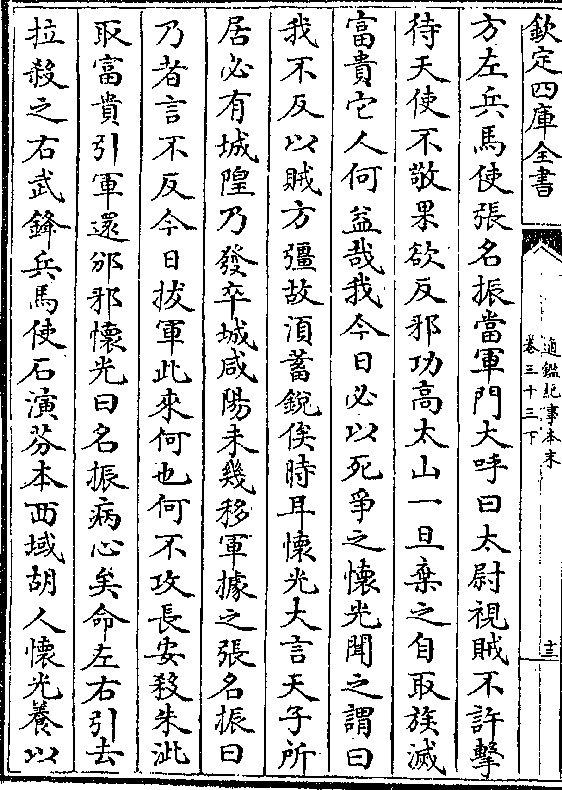 欽定四庫全書
通鑑紀事本末
卷三十三下
方左兵馬使張名振當軍門大呼曰太尉視賊不許擊
待天使不敬果欲反邪功高太山一旦棄之自取族滅
富貴它人何益哉我今日必以死爭之懷光聞之謂曰
我不反以賊方彊故須蓄銳俟時耳懷光大言天子所
居必有城隍乃發卒城咸陽未幾移軍據之張名振曰
乃者言不反今日拔軍此來何也何不攻長安殺朱泚
取富貴引軍還邠邪懷光曰名振病心矣命左右引去
拉殺之右武鋒兵馬使石演芬本西域胡人懷光養以